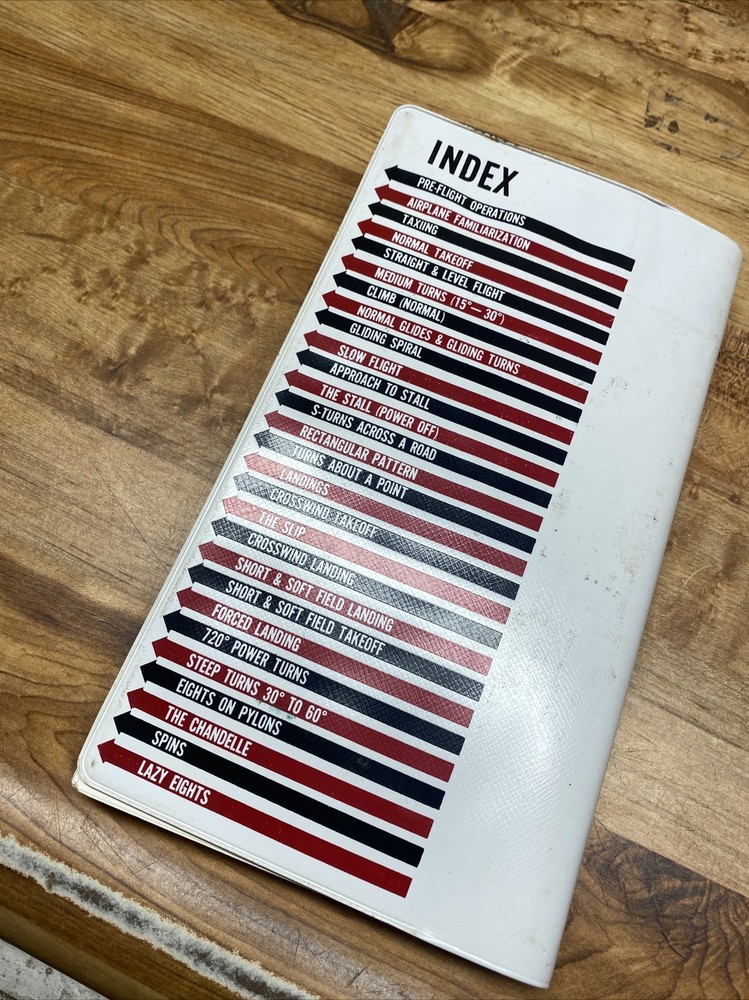 INDEX
PRE-FLIGHT OPERATIONS
AIRPLANE FAMILIARIZATION
TAXIING
NORMAL TAKEOFF
STRAIGHT & LEVEL FLIGHT
MEDIUM TURNS (15°— 30°)
CLIMB (NORMAL)
NORMAL GLIDES & GLIDING TURNS
GLIDING SPIRAL
SLOW FLIGHT
APPROACH TO STALL
THE STALL (POWER OFF)
S-TURNS ACROSS A ROAD
RECTANGULAR PATTERN
TURNS ABOUT A POINT
LANDINGS
CROSSWIND TAKEOFF
THE SLIP
CROSSWIND LANDING
SHORT & SOFT FIELD LANDING
SHORT & SOFT FIELD TAKEOFF
FORCED LANDING
720° POWER TURNS
STEEP TURNS 30° TO 60°
EIGHTS ON PYLONS
THE CHANDELLE
SPINS
LAZY EIGHTS